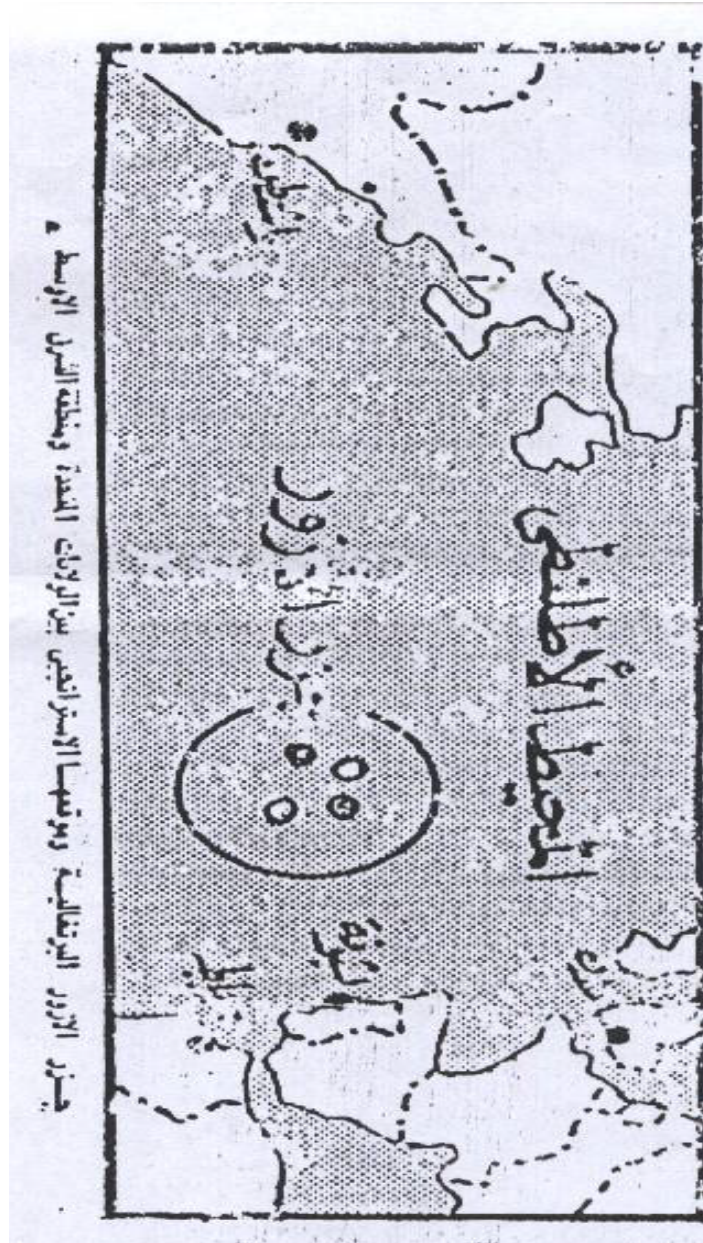 المحيط الأطلنطي
جزر ازور
لشبونة
جـزر الازور البرتغاليـة وموقعهـا الاستراتيجى بين الولايات المتحدة ومنطقة الشرق الاوسط